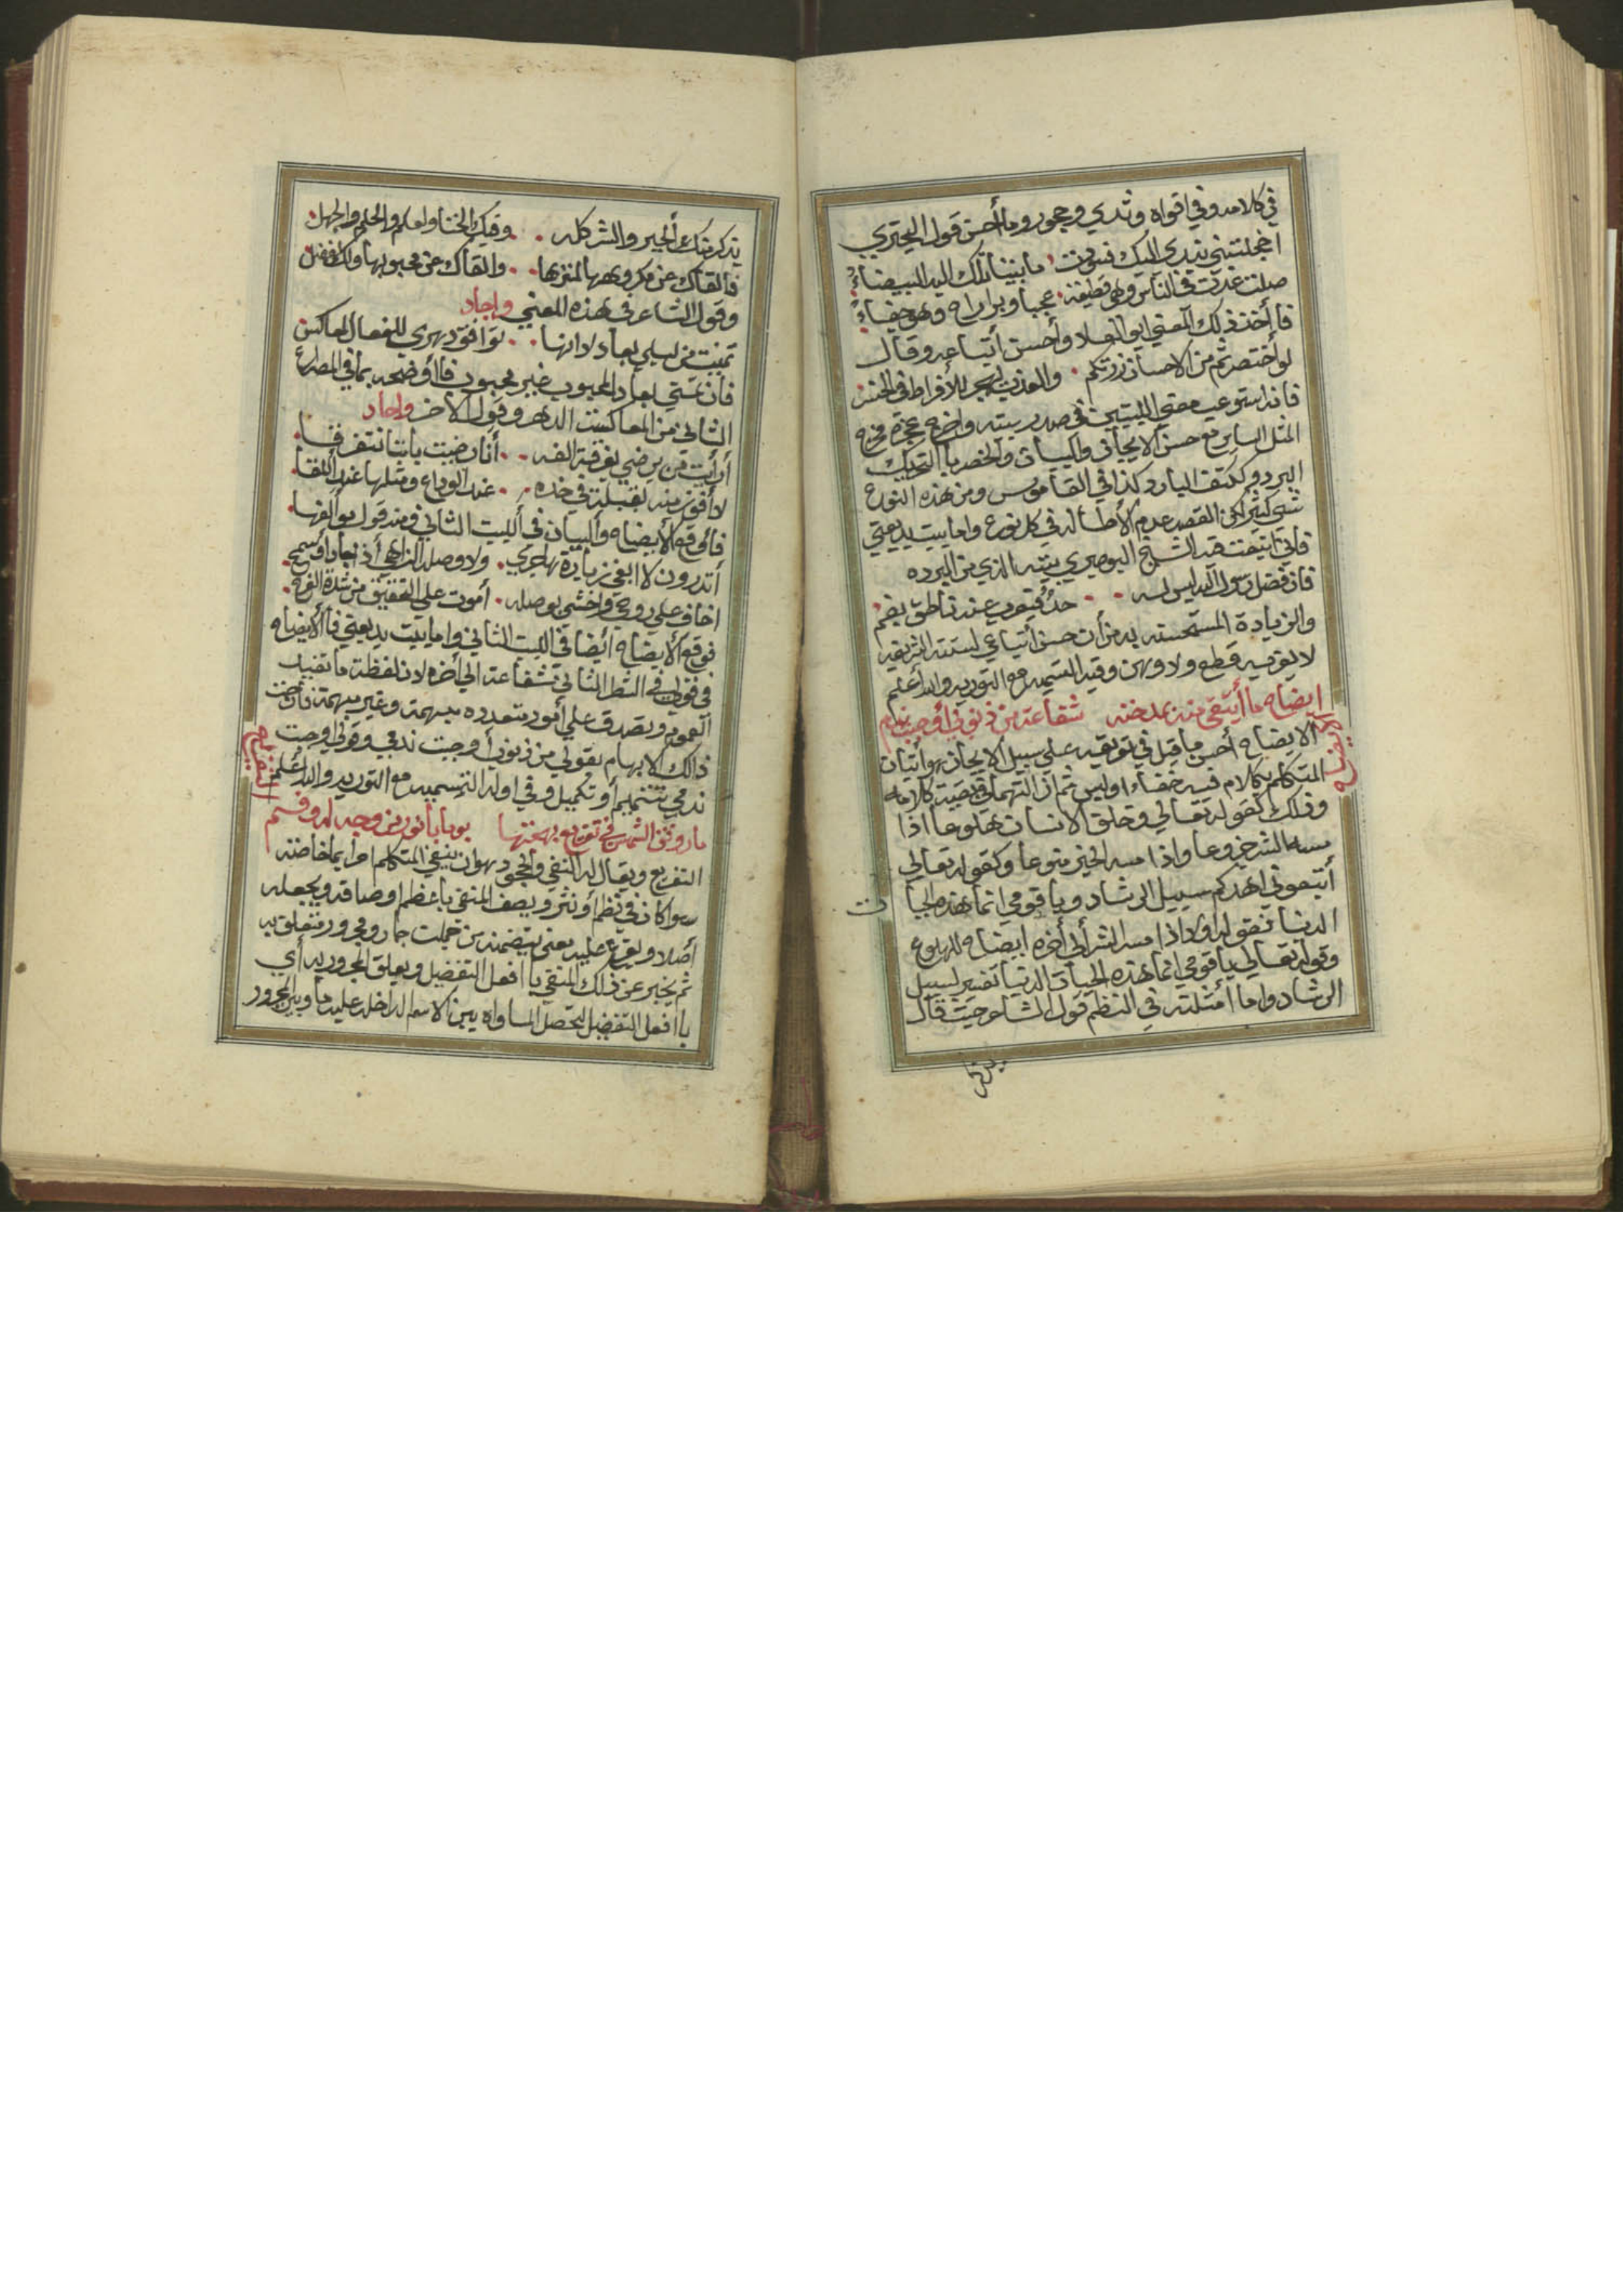 في كلامه وفي افواه وثدي وحجور وما أحسن قول البحتري
اخجلتني بندي اليك فسودت ما بيننا تلك اليد البيضاءُ
صلت غدت في الناس وهي قطيعة عجبا وبر راح وهو جفاءُ
فأخذ ذلك المعني ابو العلا وأحسن أتباعه وقال
لو أختصرتم من الاحسان زرتكم والعذب يهجر للأفراط في الخصر
فانه استوعب معني البيتين في صدر بيته واخرج عجزه مخرج
المثل الساير مع حسن الايجاز والبيان والخصر بالتحريك
البرد وككتف البارد كذا في القاموس ومن هذه النوع
شي كثير لكن القصد عدم الأطاله في كل نوع واما بيت بديعتي
فاني اتبعت فيه الشيخ البوصيري بيته الذي من البرده
فان فضل رسول الله ليس له حدٌ فيعرب عنه ناطق بفم
والزيادة المستحسنه به من أن حسن أتباعي لسنته الشريفه
لا يعتريه قطع ولا وهن وفيه التسميه مع التوريه والله أعلم
ايضاح ما أتقي منه بمدحته شفاعة من ذنوبي أوجبت ندم
الايضاح
الايضاح أحسن ما قيل في تعريفه علي سبيل الايجاز هو أتيان
المتكلم بكلام فيه خفاء اوليس ثم از التهما في بقية كلامه
وذلك كقوله تعالي وخلق الانسان هلوعا اذا
مسه الشر جزوعا واذا مسه الخير منوعا وكقوله تعالي
أتبعوني اهدكم سبيل الرشاد ويا قومي انما هذه الحيا
ت
الدنيا فقوله اولا اذا مسه الشر ألي أخره ايضاح للهلوع
وقوله تعالي يا قومي انما هذه الحيات الدنيا تفسير لسبيل
الرشاد واما أمثلته في النظم قول الشاعر حيث قال
يذكر
يذكرنيك ألخير والشر كله وقيل الخنا والعلم والحلم والجهل
فألقاك عن مكروهها متنزها والقاك عن محبوبها ولك الفضل
وقول الشاعر في هذه المعني واجاد
تمنيت من ليلي بعاد لانها توافق دهري للفعال المعاكس
فان تمني بعاد المحبوب غير محبوب فأوضحه بما في المصراع
الثاني من المعاكست الدهر وقول الاخر واجاد
أرأيت من يرضي بفرقة الفه أنا رضيت باننا نتفرقا
لأفوز منه بقبلة في خده عند الوداع ومثلها عند اللقا
فأوقع ألأيضاح وألبيان في ألبيت الثاني ومنه قول مؤلفها
أتدرون لا ابغي زيارة هاجري ولا وصله الزاهي أذ اجاد أو سمح
اخاف علي روحي واخشي بوصله أموت علي التحقيق من شدة الفرح
فوقع ألأيضاح أيضا في البيت الثاني واما بيت بديعتي فألأيضاح
في قولي في الشطر الثاني شفاعة الي أخره لان لفظة ما تفيد
العموم وتصدق علي أمور متعدده مبهمة وغير مبهمة فأزحت
ذالك الابهام بقولي من ذنوبي أوجبت ندمي وقولي أوجبت
ندمي تتميم أو تكميل وفي اوله التسميه مع التوريه والله أعلم
التفريع
ما رونق الشمس في تفريع بهجتها يوما بأنور من وجه له وفم
التفريع ويقال له النفي والجحود هو ان ينفي المتكلم امرا بما خاصته
سوا كان في نظم أو نثر ويصف المنفي باعظم اوصافه ويجعله
أصلا ويفرع عليه معني يتضمنه من جملت جار ومجرور متعلق به
ثم يخبر عن ذلك المنفي بأ افعل التفضيل ويعلق المجرور به أي
با افعل التفضيل لتحصل المساواه بين الاسم الداخله عليه ما وبين المجرور